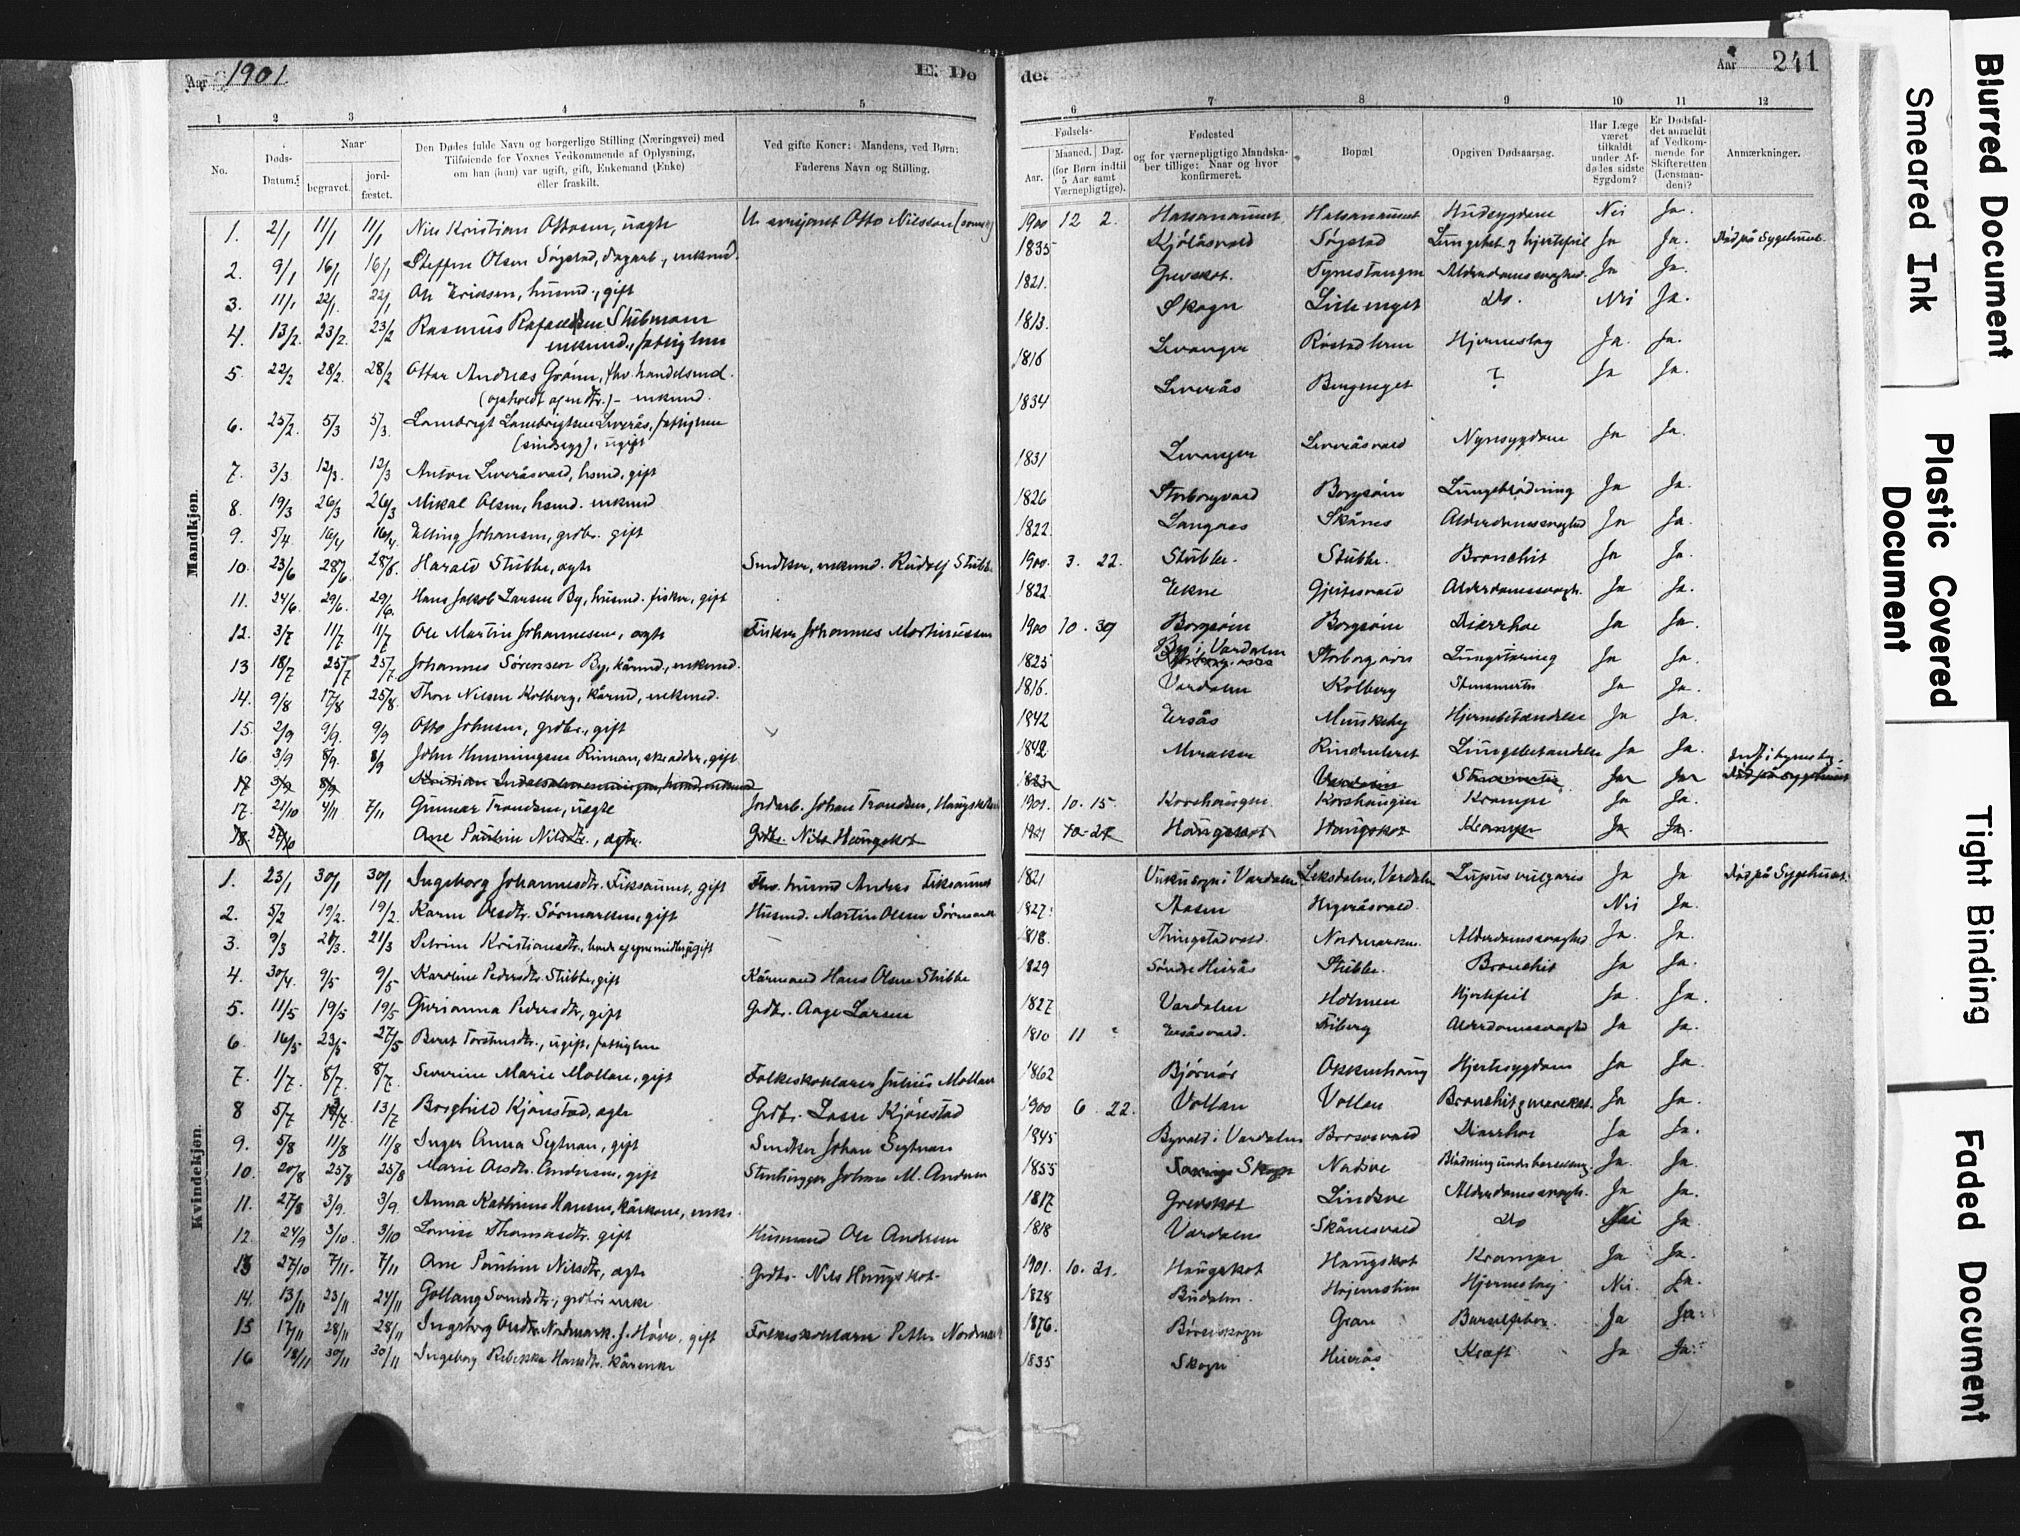 Aar 1901
E. Dø
de:
Aar 241
1 2 3 4 5 6 7 8 9 10 11 12
No.
Døds-Datum.
Naar
begravet.
jord-fæstet.
Den Dødes fulde Navn og borgerlige Stilling (Næringsvei) med
Tilføiende for Voxnes Vedkommende af Oplysning,
om han (hun) var ugift, gift, Enkemand (Enke)
eller fraskilt.
Ved gifte Koner: Mandens, ved Børn:
Faderens Navn og Stilling.
Fødsels-
Aar.
Maaned. Dag.
(for Børn indtil
5 Aar samt
Værnepligtige).
Fødested
og for værnepligtige Mandska-
ber tillige: Naar og hvor
konfirmeret.
Bopæl.
Opgiven Dødsaarsag.
Har Læge
været
tilkaldt
under Af-
dødes sidste
Sygdom?
Er Dødsfal-
det anmeldt
af Vedkom-
mende for
Skifteretten
(Lensman-
den)?
Anmærkninger.
Mandkjøn.
1. 2/1 11/1 11/1 Nils Kristian Ottosen, uægte Otto Nilssen 1900 12 2. Halsanaunet Halsanaunet Hudsygdom Nei Ja.
2. 9/1 16/1 16/1 Steffen Olsen Søgstad, dagarb., enkemd. 1835 Kjølåsvald Søgstad hjertefeil Ja Ja. Død på Sygehuset.
3. 11/1 22/1 22/1 Ole Eriksen, husmd., gift 1821. Grevskot. Tynestangen Alderdomssvaghed Ja Ja.
4. 13/2. 23/2. 23/2 Rasmus Stubmann
enkemd., fattiglem 1813. Skogn Lillenget Do. Nei Ja.
5. 22/2 28/2. 28/2 Ottar Andreas Grønn, fhv. handelsmd.
enkemd. 1816 Levanger Hjerneslag Ja. Ja.
6. 25/2. 5/3 5/3. Lambrigt Lambrigtsen Leverås, fattiglem
(sindssyg), ugift 1834 Leverås Bergenget ? Ja Ja.
7. 3/3. 12/3. 12/3 Anton Leveråsvald, husmd, gift 1831 Levanger Leveråsvald Nyresygdom Ja Ja.
8. 19/3 26/3 26/3 Mikal Olsen, husmd. enkemd 1826 Storborgvald Borgsåsen Lungeblødning Ja Ja.
9. 5/4. 16/4 16/4. Elling Johansen, grdbr. gift 1822. Langnes Skånes Alderdomssvaghed Ja Ja.
10. 23/6 28/6 28/6. Harald Stubbe, ægte Smdker, enkemd. Rudolf Stubbe 1900. 3. 22. Stubbe. Stubbe. Bronchit Ja Ja.
11. 24/6. 29/6. 29/6. Hans Jakob Larsen By, husmd. fisker, gift 1822. Ekne Alderdomssvagh. Ja Ja.
12. 3/7 11/7 11/7 Ole Martin Johannesen, ægte Fisker Johannes Martinussen 1900 10. 30 Diarrhoe Ja Ja.
13 18/7 25/7 25/7 Johannes Sørensen By, kårmd, enkemd. 1825 By i Værdalen Lungetæring Ja Ja.
14. 9/8 17/8 25/8 Thore Nilsen Kolberg, kårmd, enkemd. 1816. Værdalen Kolberg Ja Ja.
15. 2/9 9/9. 9/9 Otto Johnsen, grdbr., gift 1842 Ersås Munkeby Hjernebetændelse Ja Ja.
16. 3/9 8/9. 8/9 John Henningsen Rinnan, skrædder, gift 1842. Meraker Lungebetændelse Ja Ja.
17 3/9 8/9 Kristian
17. 21/10 4/11 7/11 Gunnar Trondsen, uægte Jordarb. Johan Trondsen 1901. 10. 15. Korshaugen Korshaugen Krampe Ja Ja.
18. 27/10 Ane Pauline Nilsdtr., ægte. Grdbr. Nils Haugskot 1901 10-21 Haugskot Haugskot Krampe Ja Ja.
Kvindekjøn.
1. 23/1 30/1 30/1 Ingeborg Johannesdtr. Fiksaunet, gift Fhv. husmd Andreas Fiksaunet 1821 Vuku sogn i Værdalen Leksdalen, Værdalen Lupus vulgaris Ja Ja Død på Sygehuset.
2. 5/2 19/2. 19/2 Karen Olsdtr. Sørmarken, gift Husmd. Martin Olsen Sørmark 1827. Aasen Nei Ja.
3. 9/3 21/3. 21/3 Petrine Kristiansdtr. 1818. Thingstadvald. Nordmarken. Alderdomssvaghed Ja. Ja.
4. 30/4. 9/5 9/5 Karoline Pedersdtr. Stubbe, gift Kårmand Hans Olsen Stubbe 1829 Søndre Heirås Stubbe. Bronchit Ja Ja.
5. 11/5 19/5 19/5 Gurianna Pedersdtr., gift Grdbr. Aage Larsen 1827 Værdalen Holmen Hjertefeil Ja. Ja.
6 16/5 23/5 27/5 Beret Torstensdtr., ugift, fattiglem 1810 11 Ersåsvald. Fiberg Alderdomssvaghed Ja Ja.
7. 1/7. 8/7. 8/7 Severine Marie Mollan, gift Folkeskolelærer Julius Mollan 1862 Bjørnør Okkenhaug Hjertesygdom Ja Ja.
8 5/7 13/7 Borghild Kjønstad, ægte Grdbr. Lasse Kjønstad 1900 6. 22. Vollan Vollan Ja Ja.
9. 5/8 11/8 11/8 Inger Anna Segtnan, gift Smdker Johan Segtnan 1845 Byvald i Værdalen Diarrhoe Ja Ja.
10. 20/8 25/8 25/8 Marie Olsdtr. Andersen, gift Stenhugger Johan M. Andersen 1855 Skogn Ja. Ja.
11. 27/8 3/9. 3/9. Anna Kathrine Hansen, kårkone, enke. 1817 Grevskot Alderdomssvagh. Ja Ja.
12. 24/9 3/10. 3/10 Lovise Thomasdtr. gift Husmand Ole Andersen 1818 Værdalen Skånesvald Do Nei Ja.
13 27/10 7/11. 7/11 Ane Pauline Nilsdtr, ægte Grdbr. Nils Haugskot. 1901. 10. 21. Haugskot Haugskot Krampe Ja Ja.
14. 13/11 23/11 24/11 1828 Budalen. Hojemslien Hjerneslag Nei. Ja.
15 17/11 28/11 28/11 Ingeborg Nordmark gift Folkeskolelærer Petter Nordmark 1876. Børseskogn Gran Barselfeber Ja Ja.
16 18/11 30/11 30/11 Ingeborg Rebekka Hansdtr. kårenke 1835 Skogn Heirås Kræft Ja Ja.
Blurred Document
Smeared Ink
Plastic Covered
Document
Tight Binding
Faded Document